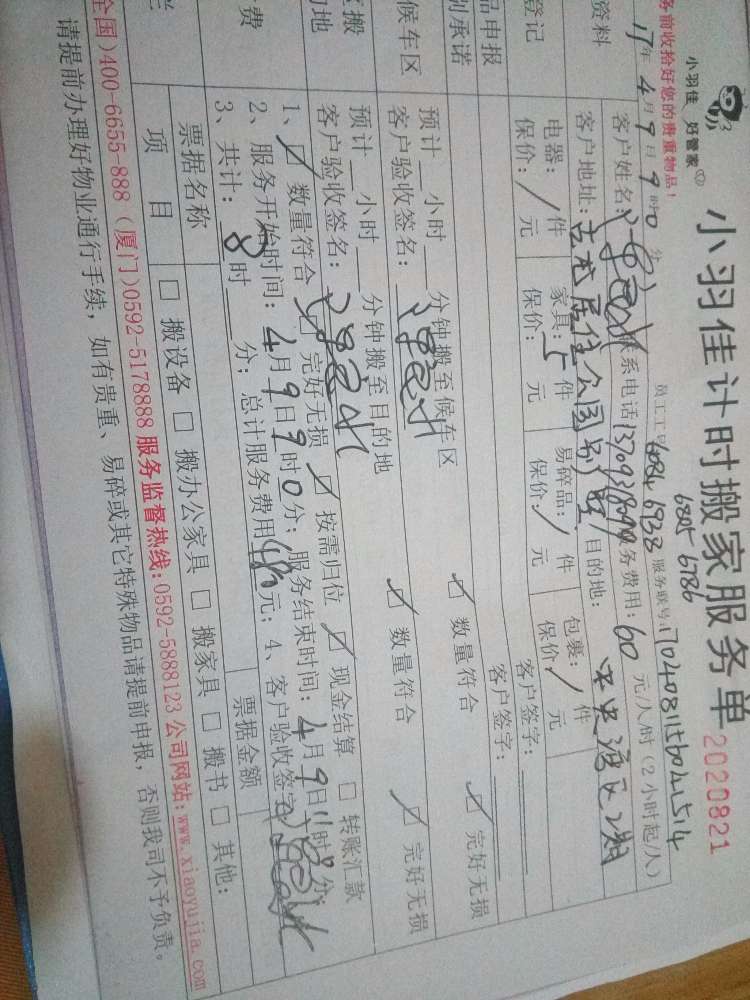 小羽佳 好管家
小羽佳计时搬家服务单
2020821
务前收拾好您的贵重物品!
员工工号 6084 6938 6805 6786 服务联号:
17年4月9日9时0分
资料
客户姓名: 联系电话 服务费用:60元/人/时(2小时起/人)
客户地址: 目的地:
登记
电器:/件 家具:5件 易碎品:/件 包裹:/件
保价: 元 保价: 元 保价: 元 保价: 元
品申报
别承诺
客户签字:
客户签字:
候车区
预计 小时 分钟搬至候车区 数量符合 完好无损
客户验收签名:
区搬
的地
预计 小时 分钟搬至目的地 数量符合 完好无损
客户验收签名:
费
1、 数量符合 完好无损 按需归位 现金结算 □ 转账汇款
2、服务开始时间:4月9日9时0分;服务结束时间:4月9日11时0分;
3、共计:8时 分;总计服务费用 元;4、客户验收签字
票据名称 票据金额
项目 □ 搬设备 □ 搬办公家具 □ 搬家具 □ 搬书 □ 其他:
全国)400-6655-888(厦门)0592-5178888 服务监督热线:0592-5888123 公司网站:www.xiaoyujia.com
请提前办理好物业通行手续,如有贵重、易碎或其它特殊物品请提前申报,否则我司不予负责。